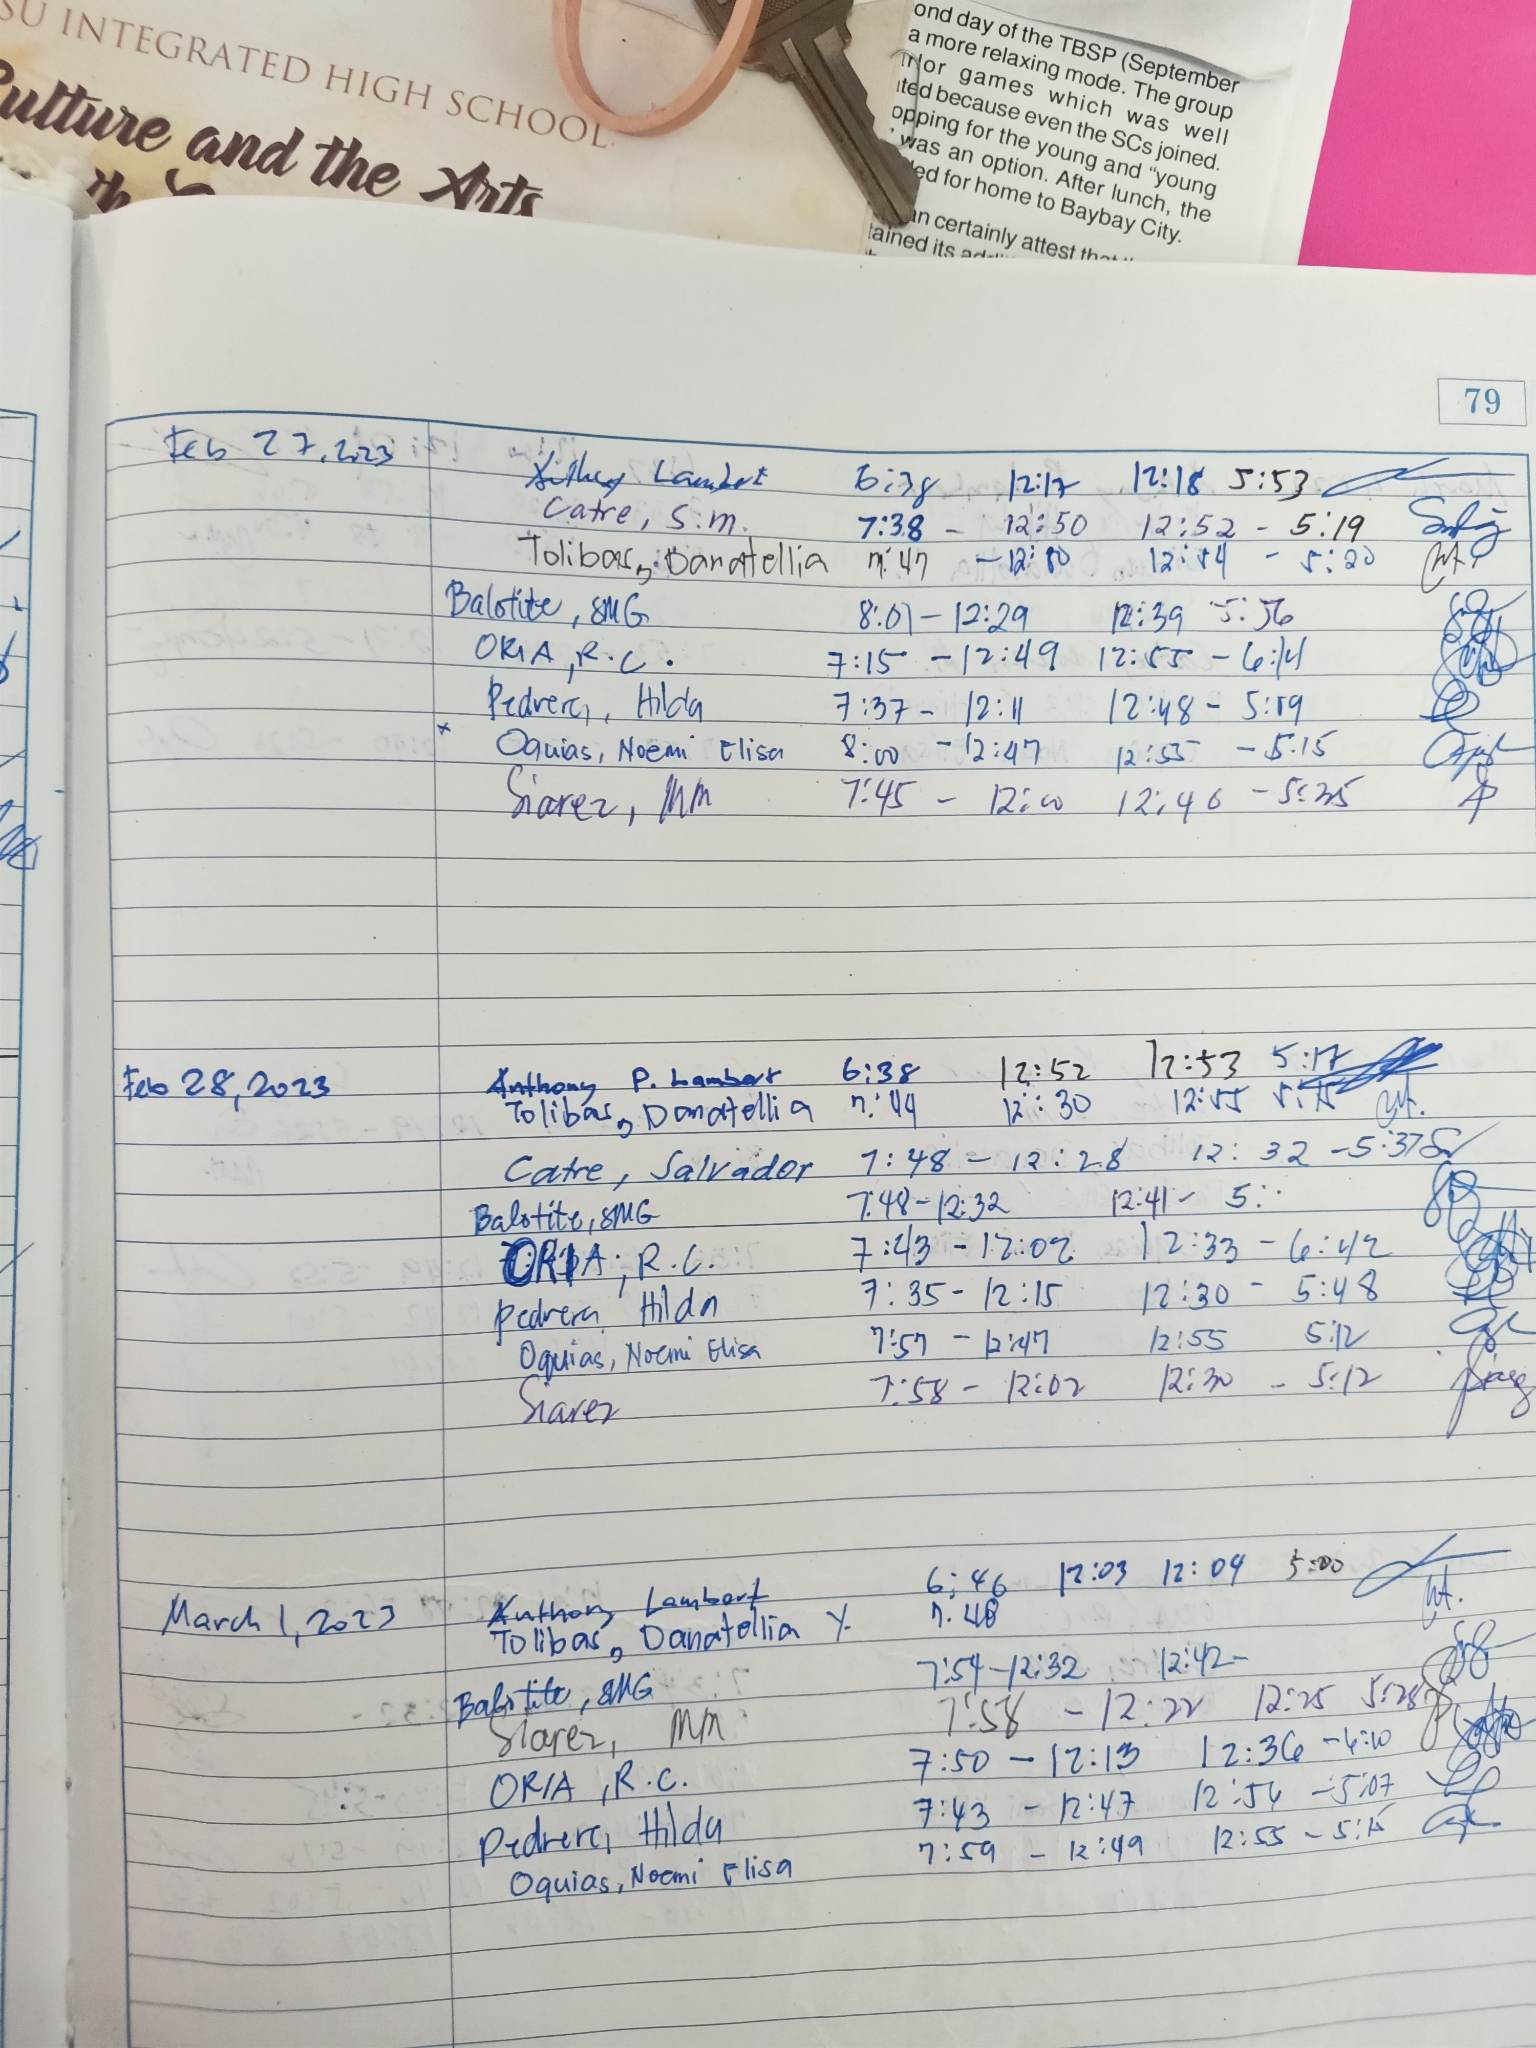 SU INTEGRATED HIGH SCHOOL
Culture and the Arts
ond day of the TBSP (September
a more relaxing mode. The group
games which was well
because even the SCs joined.
opping for the young and "young
was an option. After lunch, the
ed for home to Baybay City.
an certainly attest
tained its
79
Feb 27, 2023
Anthony Lambert 6:38 12:17 12:18 5:53
Catre, S.M. 7:38 - 12:50 12:52 - 5:19
Tolibas, Danatellia 7:47 - 12:50 12:54 - 5:20
Balotite, SMG 8:01 - 12:29 12:39 5:56
ORIA, R.C. 7:15 - 12:49 12:55 - 6:14
Pedrera, Hilda 7:37 - 12:11 12:48 - 5:19
x Oquias, Noemi Elisa 8:00 - 12:47 12:55 - 5:15
Siarez, MM 7:45 - 12:00 12:46 - 5:35
Feb 28, 2023
Anthony P. Lambert 6:38 12:52 12:53 5:17
Tolibas, Danatellia 7:44 12:30 12:55 5:15
Catre, Salvador 7:48 - 12:28 12:32 - 5:37
Balotite, SMG 7:48 - 12:32 12:41 - 5:
ORIA, R.C. 7:43 - 12:02 12:33 - 6:42
Pedrera Hilda 7:35 - 12:15 12:30 - 5:48
Oquias, Noemi Elisa 7:57 - 12:47 12:55 5:12
Siarez 7:58 - 12:02 12:30 - 5:12
March 1, 2023
Anthony Lambert 6:46 12:03 12:04 5:00
Tolibas, Danatellia Y. 7:48
Balotite, SMG 7:54 - 12:32 12:42 -
Siarez, MM 7:58 - 12:22 12:25 5:28
ORIA, R.C. 7:50 - 12:13 12:36 - 6:10
Pedrera, Hilda 7:43 - 12:47 12:54 - 5:07
Oquias, Noemi Elisa 7:59 - 12:49 12:55 - 5:15